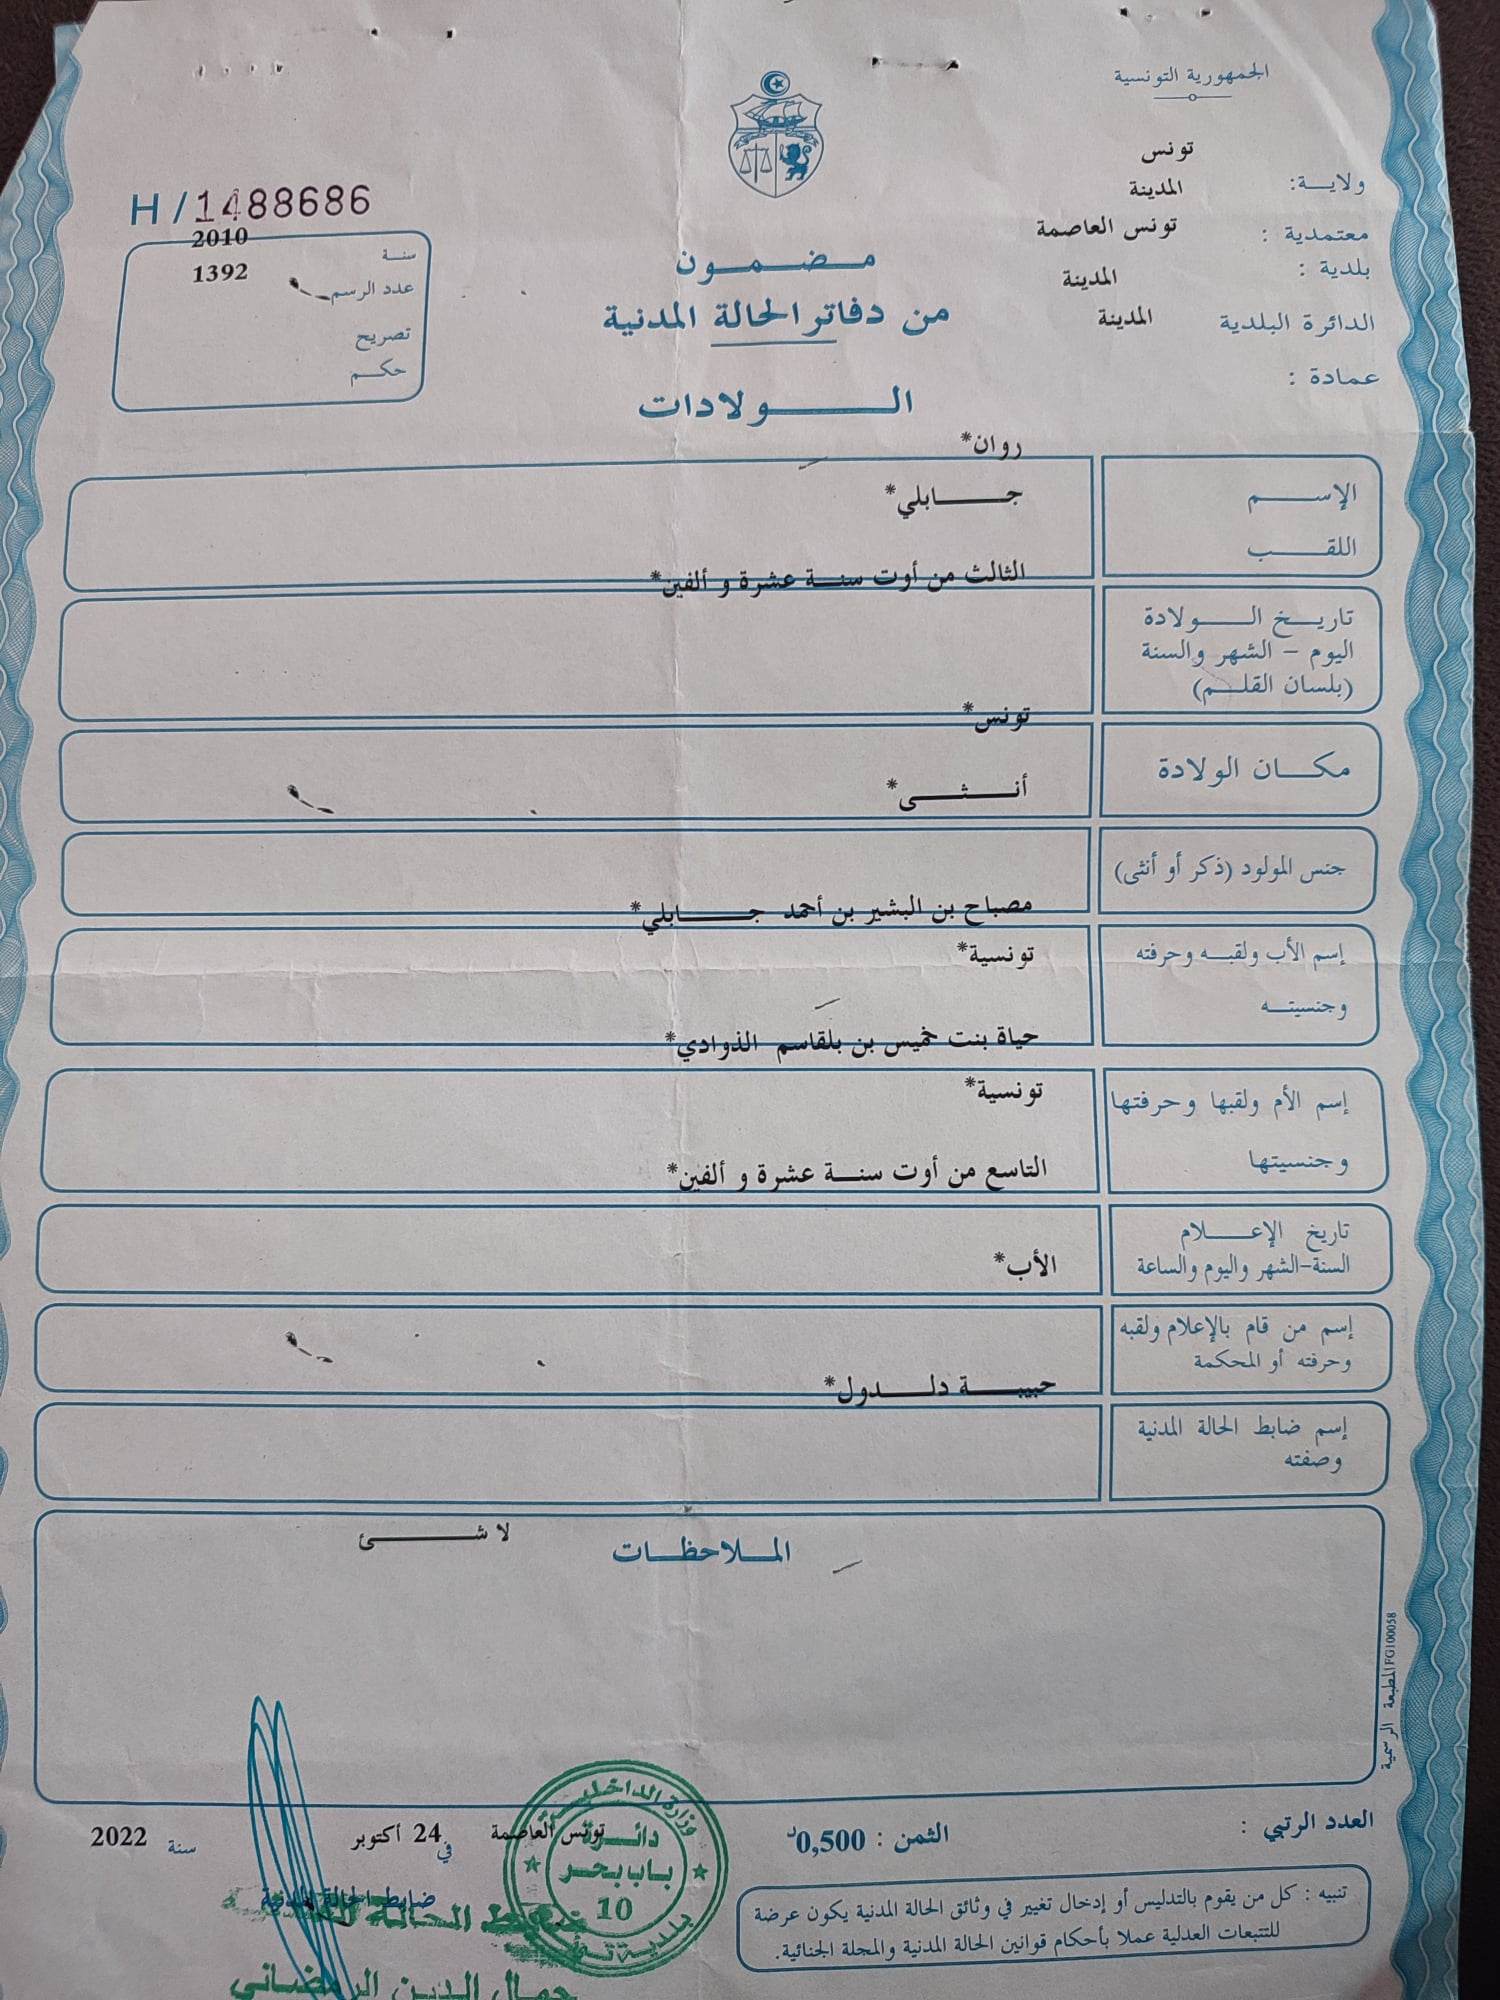 الجمهورية التونسية
تونس
ولايـــة:
المدينة
معتمدية :
تونس العاصمة
بلدية :
المدينة
الدائرة البلدية
المدينة
عمادة :
H/1488686
سنـة 2010
عدد الرسم 1392
تصريح
حكـم
مـضـمـون
من دفاتر الحالة المدنية
الـــولادات
روان*
الإســـم
جـــابلي*
اللقـــب
الثالث من أوت سنـــة عشرة و ألفين*
تاريــخ الـــولادة
اليوم – الشهر والسنة
(بلسان القلـــم)
تونس*
مكـــان الولادة
أنـــثـــى*
جنس المولود (ذكر أو أنثى)
مصباح بن البشير بن أحمد جـــابلي*
إسم الأب ولقبـــه وحرفته
تونسية*
وجنسيتـــه
حياة بنت خميس بن بلقاسم الذوادي*
إسم الأم ولقبها وحرفتها
تونسية*
وجنسيتها
التاسع من أوت سنـــة عشرة و ألفين*
تاريخ الإعـــلام
السنة-الشهر واليوم والساعة
الأب*
إسم من قام بالإعلام ولقبه
وحرفته أو المحكمة
حبيبـــة دلـــدول*
إسم ضابط الحالة المدنية
وصفته
الملاحظـــات
لا شـــئ
المطبعة الرسمية FG100058
العدد الرتبي :
الثمن : 0,500د
تونس العاصمة في 24 أكتوبر سنة 2022
ضابط الحالة المدنية
وزارة الداخليـــة
دائـــرة
باب بحر
10
جمال الدين الرمضاني
تنبيه : كل من يقوم بالتدليس أو إدخال تغيير في وثائق الحالة المدنية يكون عرضة
للتتبعات العدلية عملا بأحكام قوانين الحالة المدنية والمجلة الجنائية.